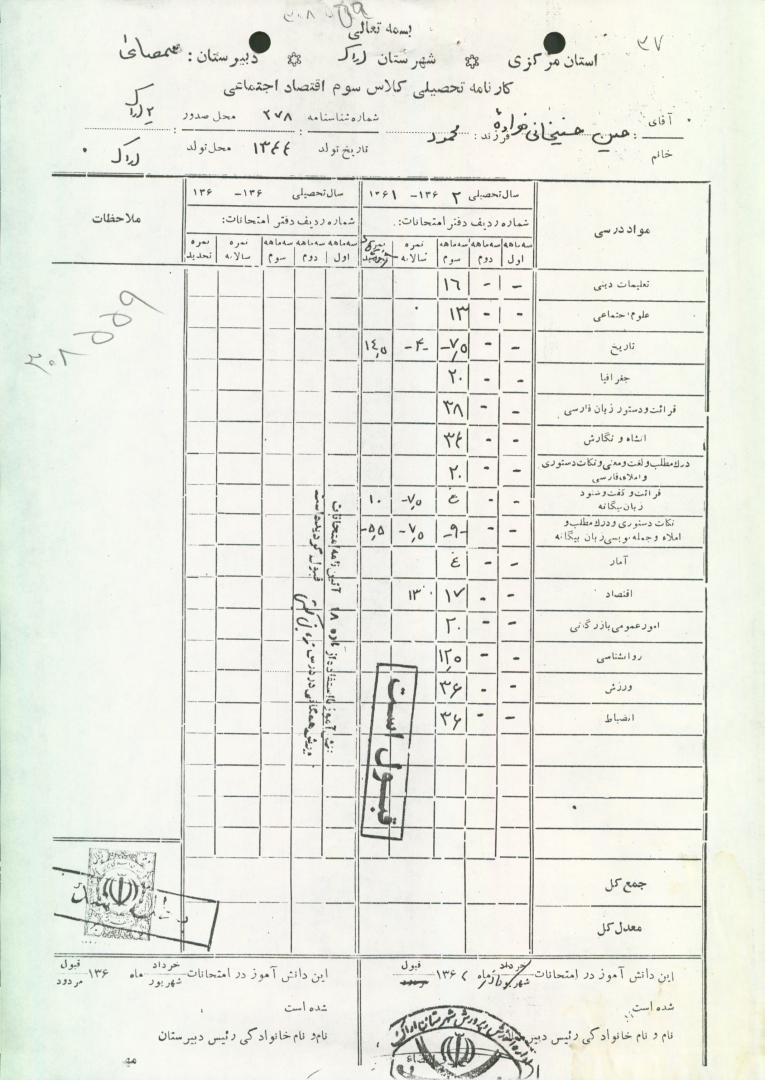 بسمه تعالی
استان مرکزی شهرستان اراک دبیرستان: صمصامی
۳۷
کارنامه تحصیلی کلاس سوم اقتصاد اجتماعی
آقای
خانم
فرزند: محمود شماره شناسنامه ۲۷۸ محل صدور ۲ اراک
تاریخ تولد ۱۳۴۴ محل تولد اراک
مواد درسی
سال تحصیلی ۲ ۱۳۶- ۱۳۶۱
شماره ردیف دفتر امتحانات:
سه‌ماهه اول سه‌ماهه دوم سه‌ماهه سوم نمره سالانه
سال تحصیلی ۱۳۶- ۱۳۶
شماره ردیف دفتر امتحانات:
سه‌ماهه اول سه‌ماهه دوم سه‌ماهه سوم نمره سالانه نمره تجدید
ملاحظات
تعلیمات دینی - - ۱۶
علوم اجتماعی - - ۱۳
تاریخ - - ۷/۵ -۴- ۱۴/۵
جغرافیا - - ۲۰
قرائت و دستور زبان فارسی - - ۳۸
انشاء و نگارش - - ۳۴
درک مطلب و لغت و معنی و نکات دستوری و املاء فارسی - - ۲۰
قرائت و گفت و شنود زبان بیگانه - - ۴ ۷/۵ ۱۰
نکات دستوری و درک مطلب و املاء و جمله نویسی زبان بیگانه - - -۹- ۷/۵ ۵/۵
آمار - - ۴
اقتصاد - - ۱۷ ۱۳
امور عمومی بازرگانی - - ۲۰
روانشناسی - - ۱۲/۵
ورزش - - ۳۶
انضباط - - ۳۶
جمع کل
معدل کل
دانش آموز با استفاده از ماده ۱۸ آئین نامه امتحانات
قبول گردیده است
قبول است
این دانش آموز در امتحانات خرداد شهریور ماه ۱۳۶۲ قبول مردود
شده است
نام و نام خانوادگی رئیس دبیرستان
این دانش آموز در امتحانات خرداد شهریور ماه ۱۳۶ قبول مردود
شده است
نام و نام خانوادگی رئیس دبیرستان
اداره آموزش و پرورش شهرستان اراک
مهر